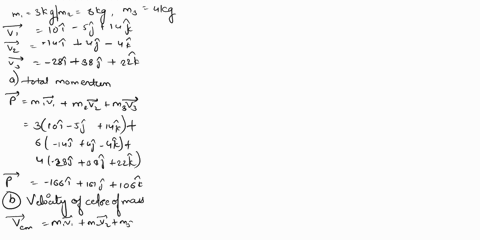 m₁ = 3kg, m₂ = 8kg, m₃ = 4kg
V₁ = 10î - 5ĵ + 14k̂
V₂ = -14î + 4ĵ - 4k̂
V₃ = -28î + 38ĵ + 22k̂
a) total momentum
P = m₁v₁ + m₂v₂ + m₃v₃
= 3(10î - 5ĵ + 14k̂) +
6(-14î + 4ĵ - 4k̂) +
4(-28î + 38ĵ + 22k̂)
P = -166î + 161ĵ + 106k̂
b) Velocity of cetre of mass
V cm = m₁v₁ + m₂v₂ + m₃